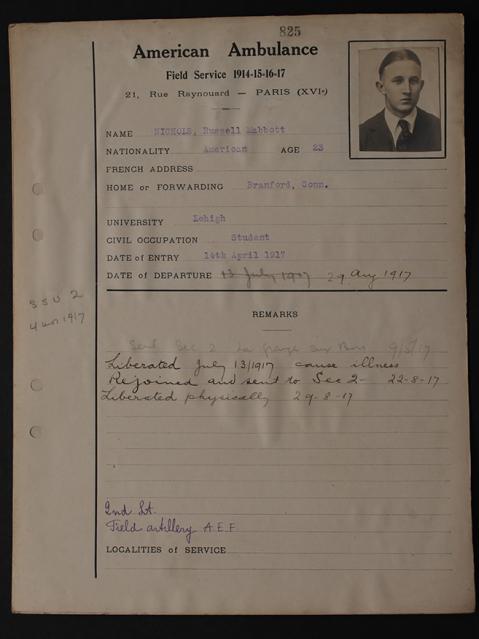 825
American Ambulance
Field Service 1914-15-16-17
21, Rue Raynouard — PARIS (XVIe)
NAME NICHOLS, Russell Mabbott
NATIONALITY American AGE 23
FRENCH ADDRESS
HOME or FORWARDING Branford, Conn.
UNIVERSITY Lehigh
CIVIL OCCUPATION Student
DATE of ENTRY 14th April 1917
DATE of DEPARTURE 13 July 1917 29 Aug 1917
SSU 2
REMARKS
Sent Sec 2 La Grange aux Bois 9/5/17
Liberated July 13/1917 cause illness
Rejoined and sent to Sec 2- 22-8-17
Liberated physically 29-8-17
2nd Lt.
Field artillery A.E.F
LOCALITIES of SERVICE